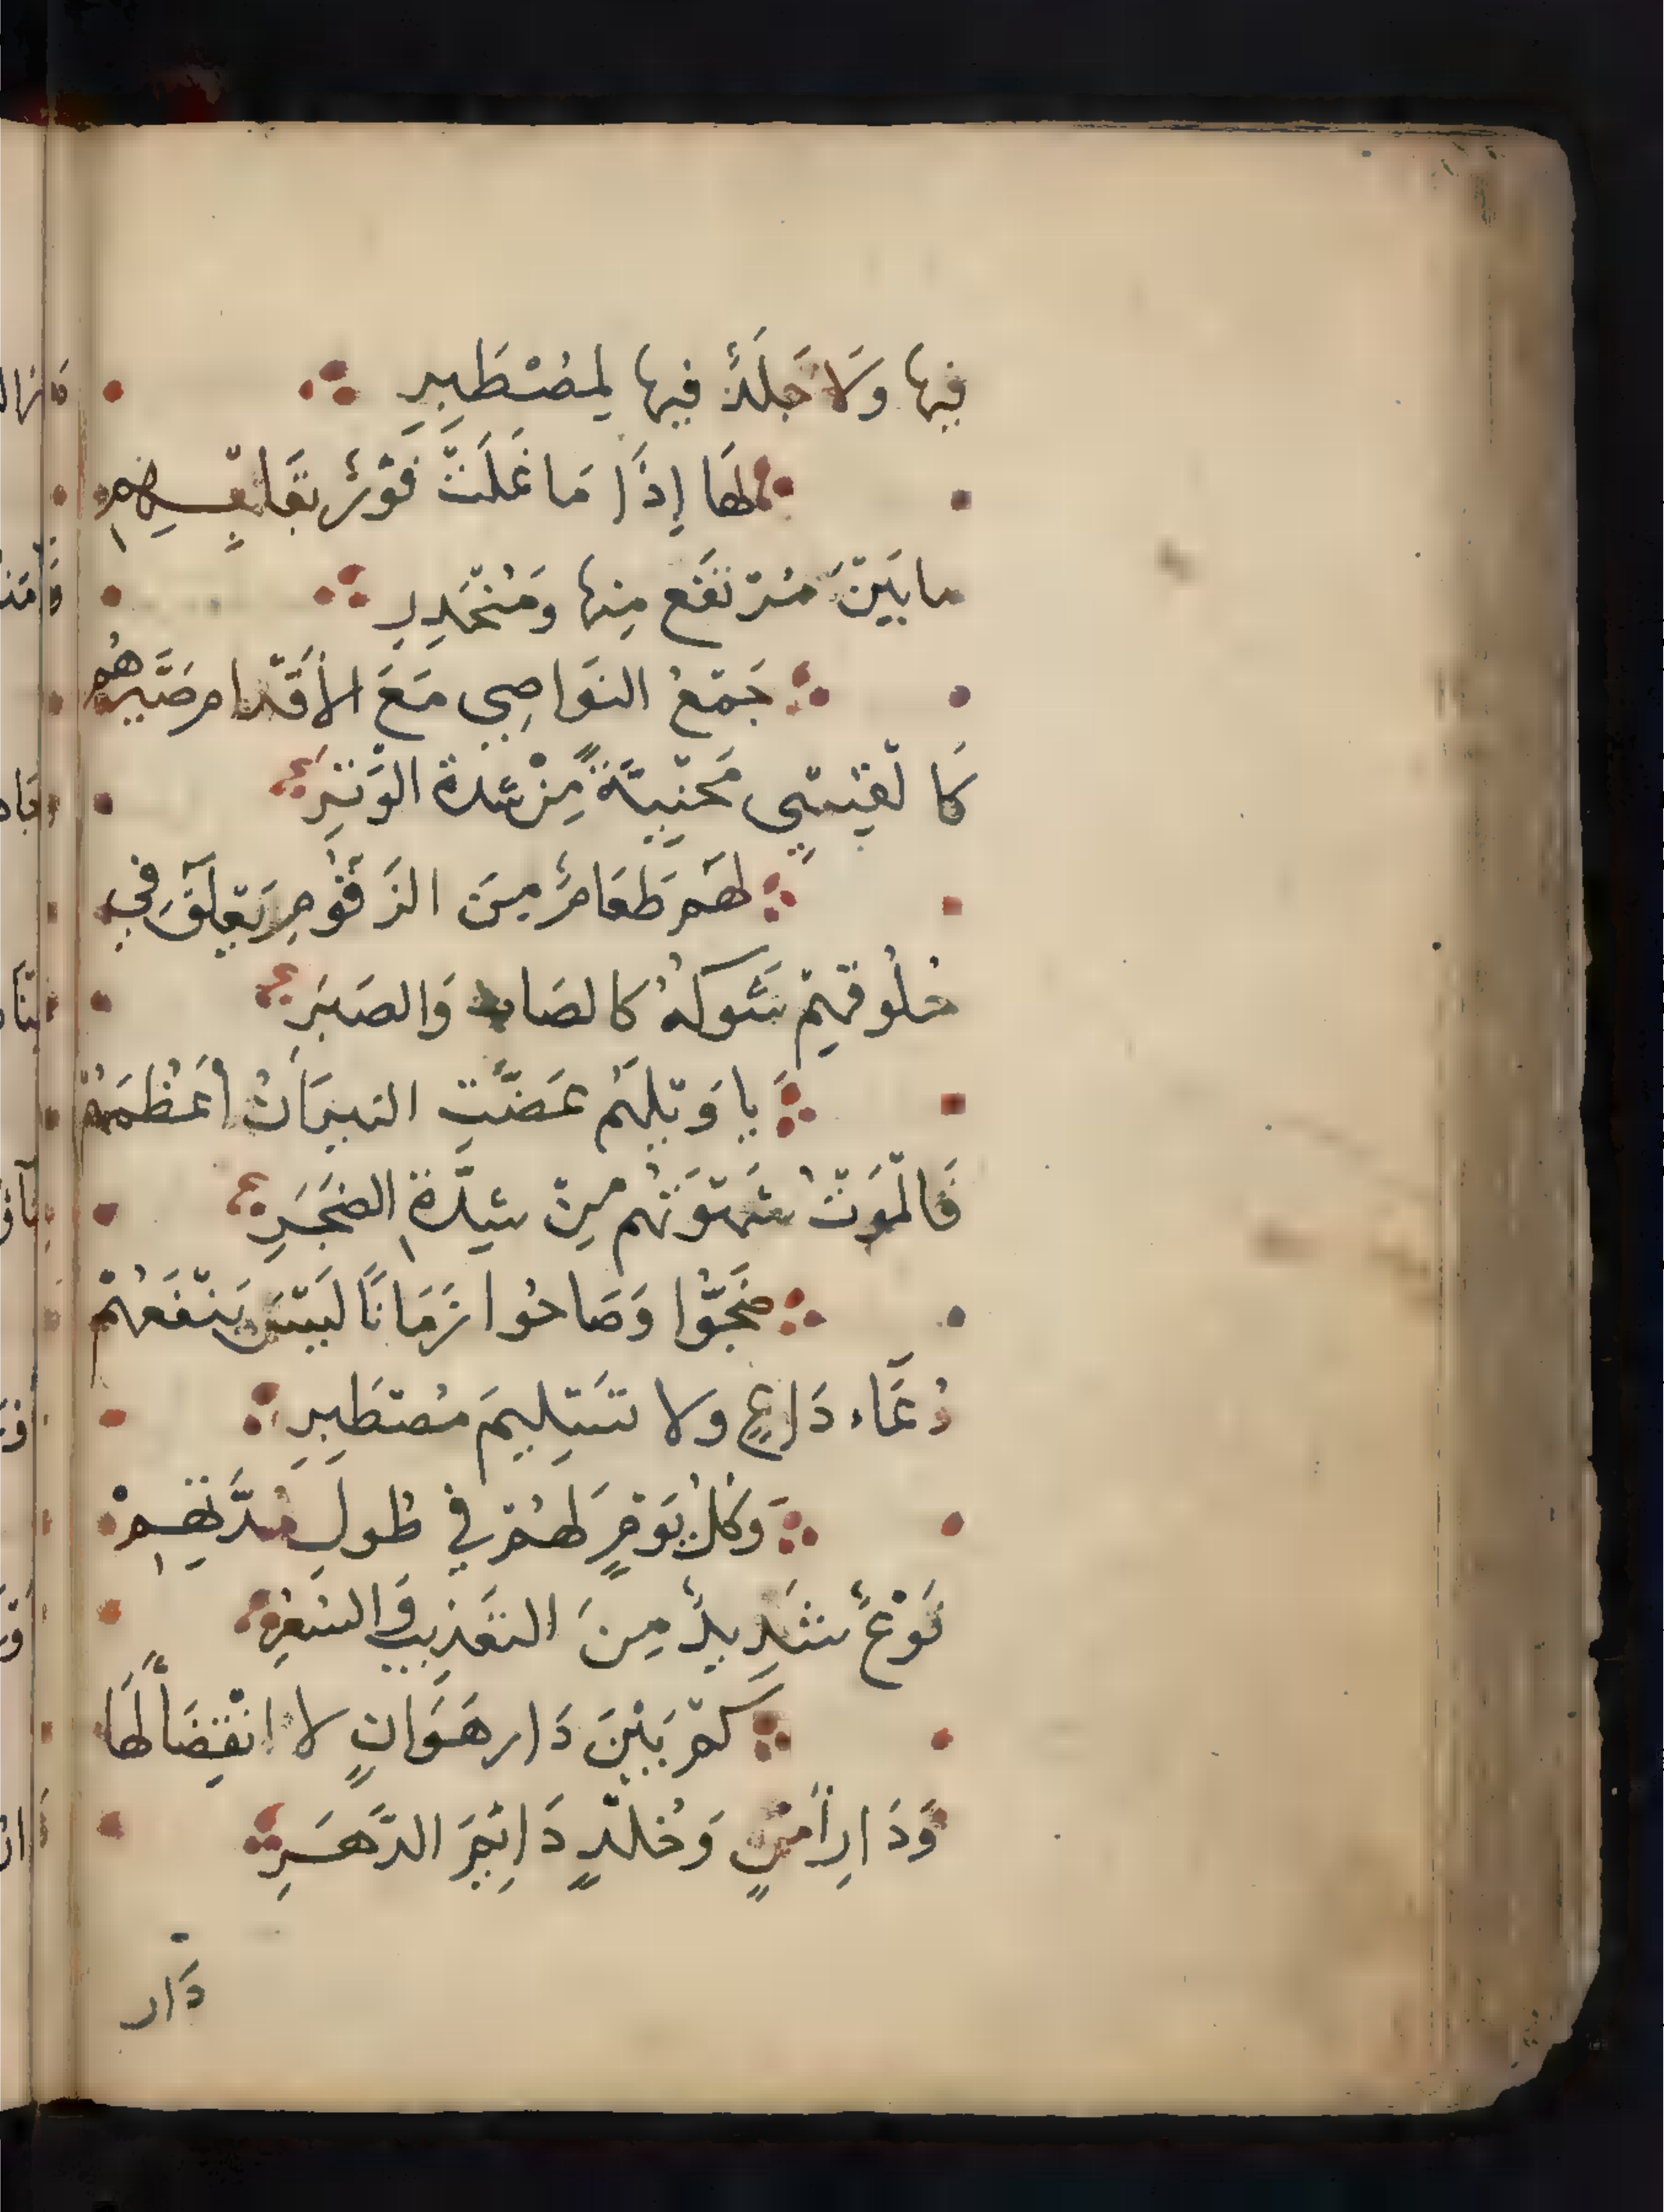 فيها وَلَا جَلَدٌ فيها لِمُصْطَبِرِ
لها إِذَا مَا غَلَتْ فَوْرٌ يقَلِّبُهُم
ما بَيْنَ مُرْتَفَع مِنها وَمُنْحَدِرِ
جَمْعُ النوَاصِي مَعَ الأَقْدَام صَيَّرهُم
كَالْقِسِيِّ مَحْنِيَّةً مِنْ شدة الوَتَرِ
لهَم طَعَامٌ مِنَ الزَقُّومِ يَعْلَقُ فِي
حُلُوقهِم شَوكُهُ كالصَاب وَالصَبَرِ
يا وَيْلَهُم عَضَّتِ النيرَانُ أَعْظُمَهُمْ
فَالْمَوْتُ شَهْوَتُهُم مِنْ شِدَّةِ الضَجَرِ
ضَجُّوا وَصَاحُوا زَمَانًا لَيْسَ يَنْفَعُهُمْ
دُعَاء دَاعٍ ولا تَسْلِيمَ مُصْطَبِرِ
وَكُلُ يَوْمٍ لَهُمْ في طُولِ مُدَّتِهِمْ
نَوْعٌ شَدِيدٌ مِنَ التَعْذِيبِ وَالسُعُرِ
كَمْ بَيْنَ دَار هَوَانٍ لا انْقِضَاً لَهَا
وَدَارِ أَمْنٍ وَخُلْدٍ دَائِمَ الدَّهَرِ
دَار